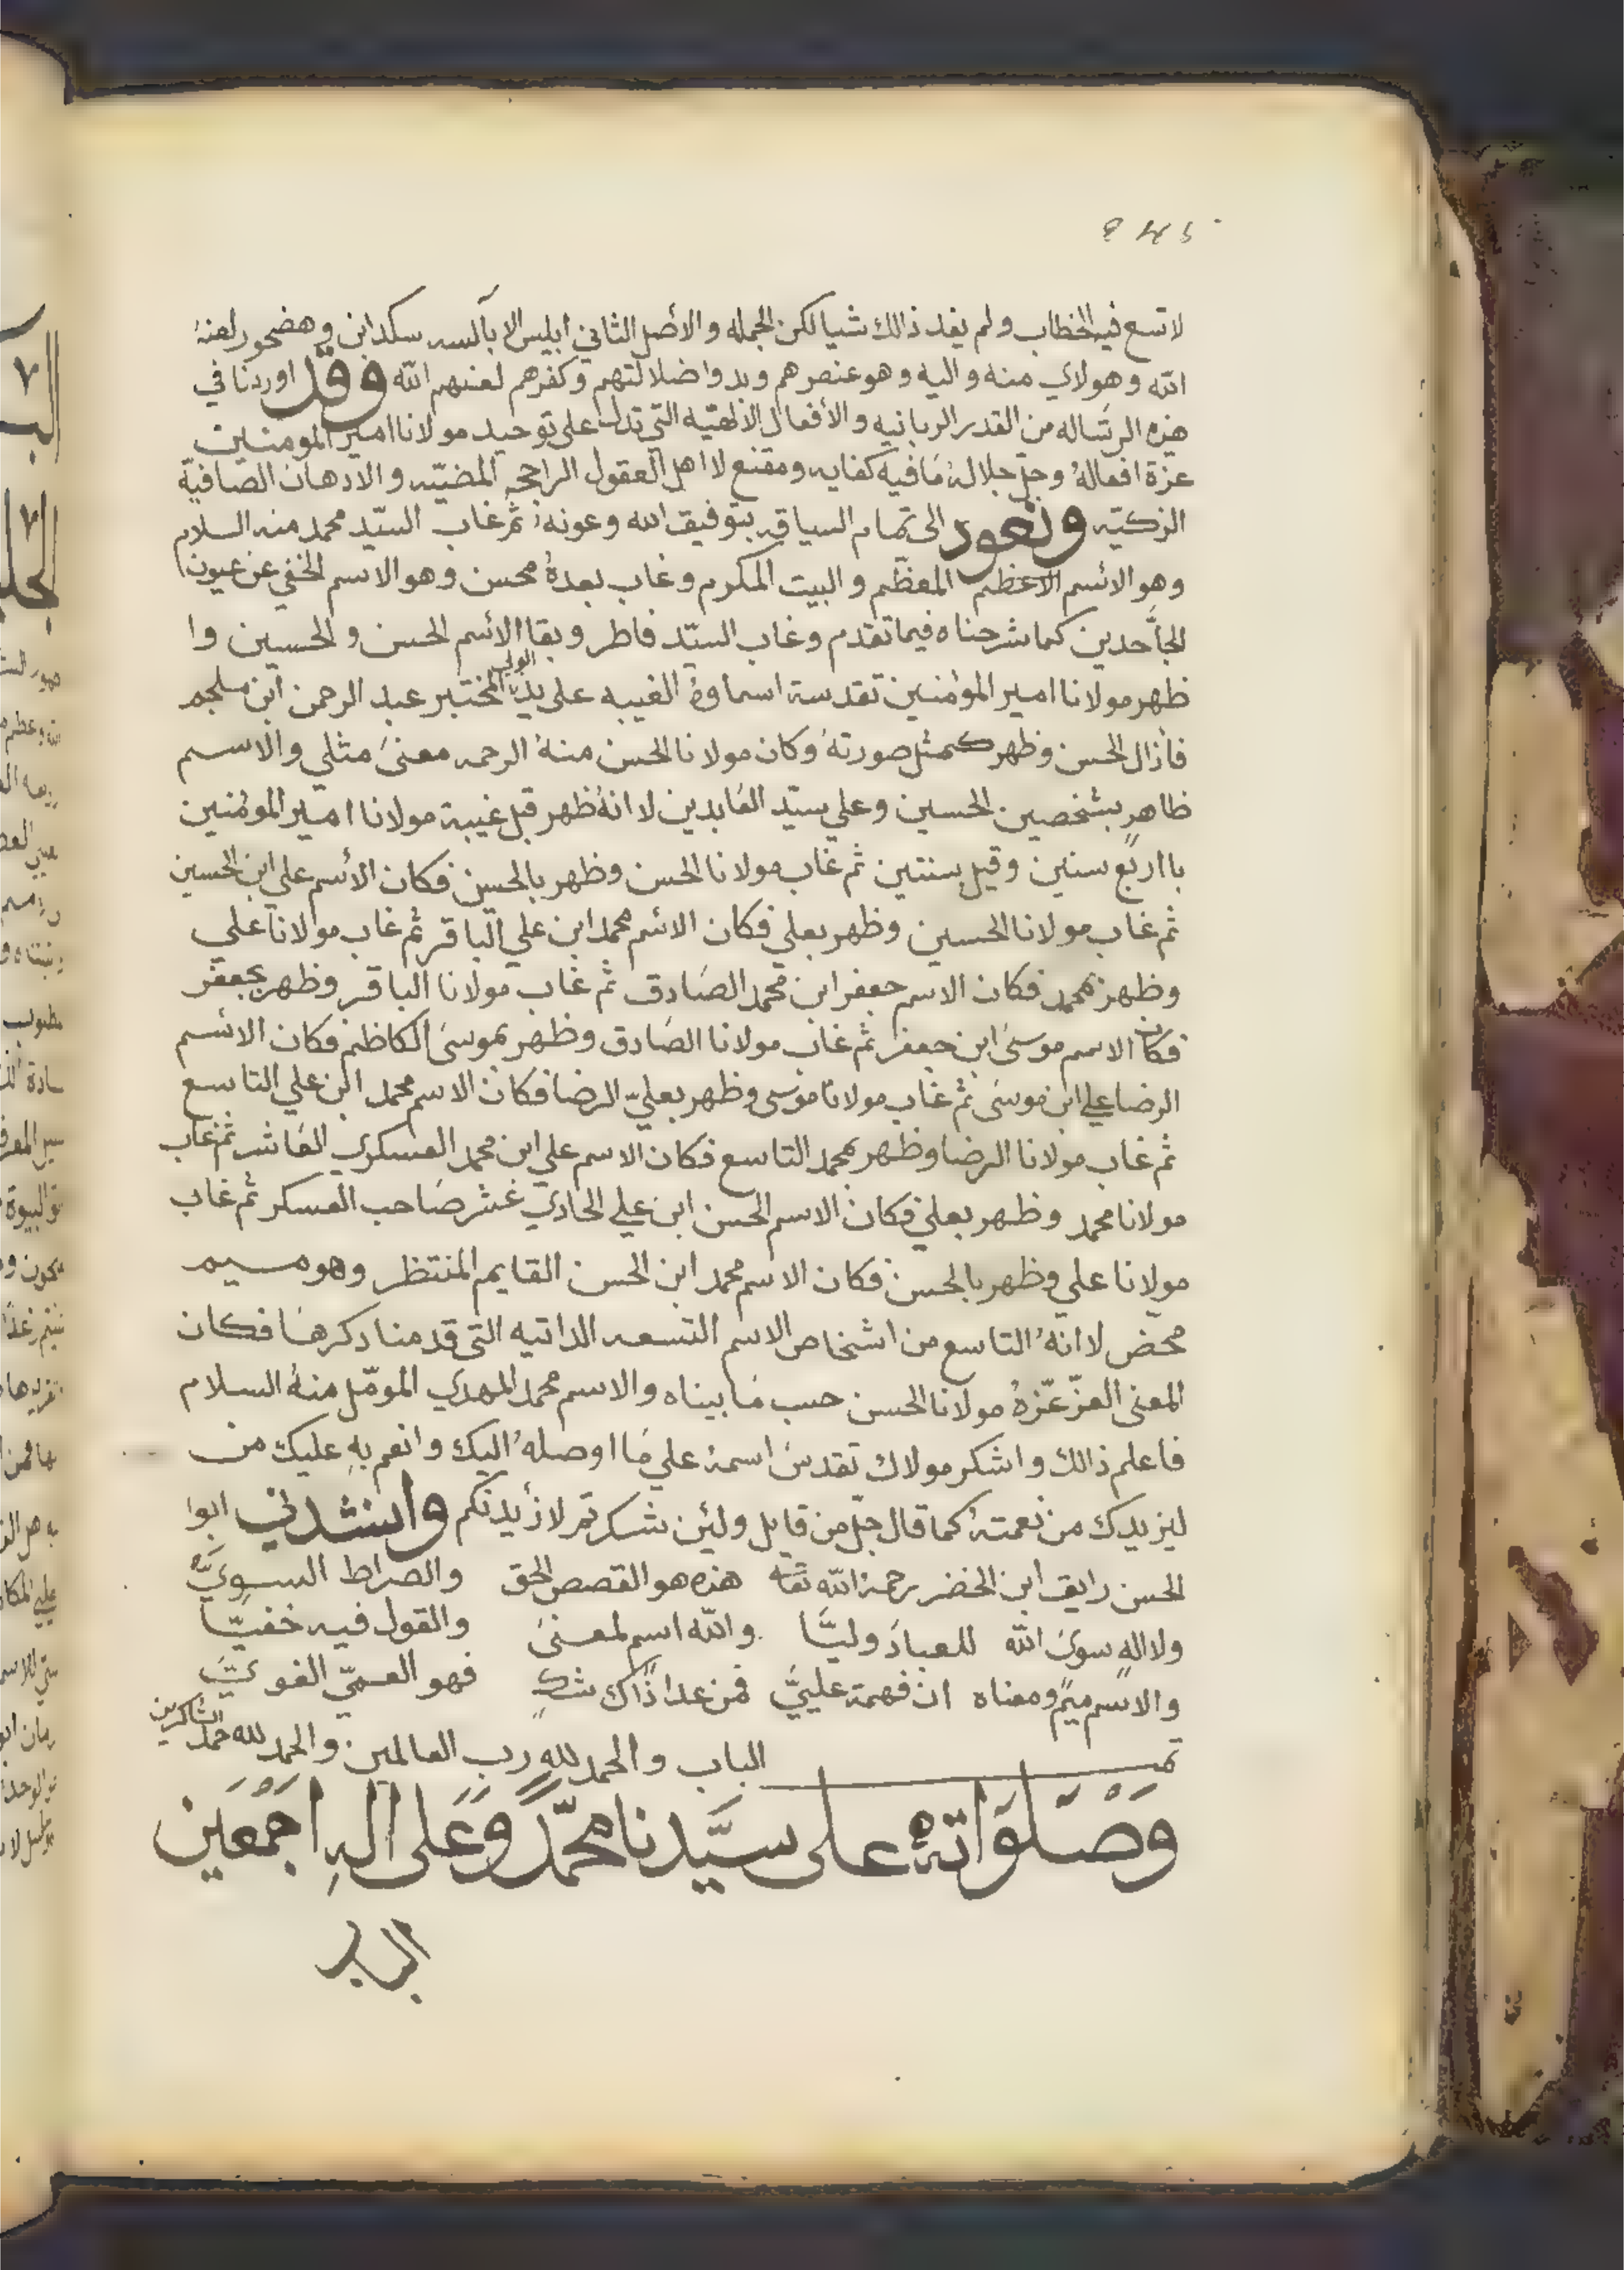 لا تسع فيه الخطاب ولم يفد ذالك شيا لكن الجمله والأصل الثاني ابليس الابالسه سكد ابن وهضحور لعنهُ
الله وهولاي منه واليه وهو عنصرهم وبدوا ضلالتهم وكفرهم لعنهم الله وقد اوردنا في
هذه الرساله من القدر الربانيه والأفعال الالهيّه التي تدل على توحيد مولانا امير المومنين
عزة افعالهُ وجلّ جلالهُ ما فيه كفايه ومقنع لااهل العقول الراجحه المضيّه والادهان الصافيّة
الزكيّه ونعود الى تمام السياقه بتوفيق الله وعونه ثم غاب السيّد محمد منه السلام
وهو الاسم الاعظم المعظّم والبيت المكرم وغاب بعدهُ محسن وهو الاسم الخفي عن عيون
الجاحدين كما شرحناه فيما تقدم وغاب السيّد فاطر وبقا الاسم الحسن والحسين وا
ظهر مولانا امير المومنين تقدسة اسماوهُ الغيبه على يد الولي المختبر عبد الرحمن ابن ملجم
فأزال الحسن وظهر كمثل صورتهُ وكان مولانا الحسن منهُ الرحمه معنىً مثلي والاسم
ظاهر بشخصين الحسين وعلي سيّد العابدين لاانهُ ظهر قبل غيبة مولانا امير المومنين
بااربع سنين وقيل سنتين ثم غاب مولانا الحسن وظهر بالحسين فكان الأسم علي ابن الحسين
ثم غاب مولانا الحسين وظهر بعلي فكان الاسم محمد ابن علي الباقر ثم غاب مولانا علي
وظهر بمحمد فكان الاسم جعفر ابن محمد الصادق ثم غاب مولانا الباقر وظهر بجعفر
فكان الاسم موسى ابن جعفر ثم غاب مولانا الصادق وظهر بموسى الكاظم فكان الاسم
الرضا علي ابن موسى ثم غاب مولانا موسى وظهر بعليّ الرضا فكان الاسم محمد ابن علي التاسع
ثم غاب مولانا الرضا وظهر بمحمد التاسع فكان الاسم علي ابن محمد العسكري العاشر ثم غاب
مولانا محمد وظهر بعلي فكان الاسم الحسن ابن علي الحادي عشر صاحب العسكر ثم غاب
مولانا علي وظهر بالحسن فكان الاسم محمد ابن الحسن القايم المنتظر وهو ميم
محض لاانهُ التاسع من اشخاص الاسم التسعه الداتيه التي قدمنا دكرها فكان
المعنى العزّ عزّهُ مولانا الحسن حسب ما بيناه والاسم محمد المهدي المومّل منهُ السلام
فاعلم ذالك واشكر مولاك تقدس اسمهُ علي ما اوصلهُ اليك وانعم بهِ عليك من
ليزيدك من نعمتهُ كما قال جلّ من قايل ولئن شكرتم لازيدنكم وانشدني ابوا
الحسن رايق ابن الخضر رحمة الله تعا هذه هو القصص الحق والصراط السويُّ
ولا اله سوى الله للعباد وليًّا والله اسم لمعنىً والقول فيه خفيّا
والاسم ميم ومعناه ان فهمة عليّ فمن عدا ذاك شكٍ فهو العميّ الغويّ
تمـ الباب والحمد لله رب العالمين والحمد لله حمد الشاكرين
وَصَلَوَاتهُ على سيّدنا محمّدٍ وَعَلى الهِ اجمَعَين